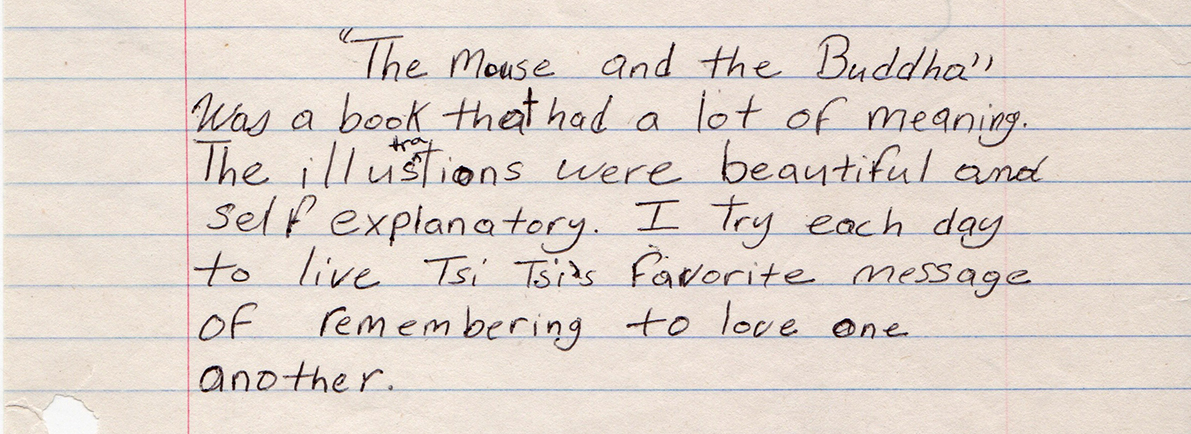 "The Mouse and the Buddha"
Was a book that had a lot of meaning.
The illustrations were beautiful and
self explanatory. I try each day
to live Tsi Tsi's favorite message
of remembering to love one
another.